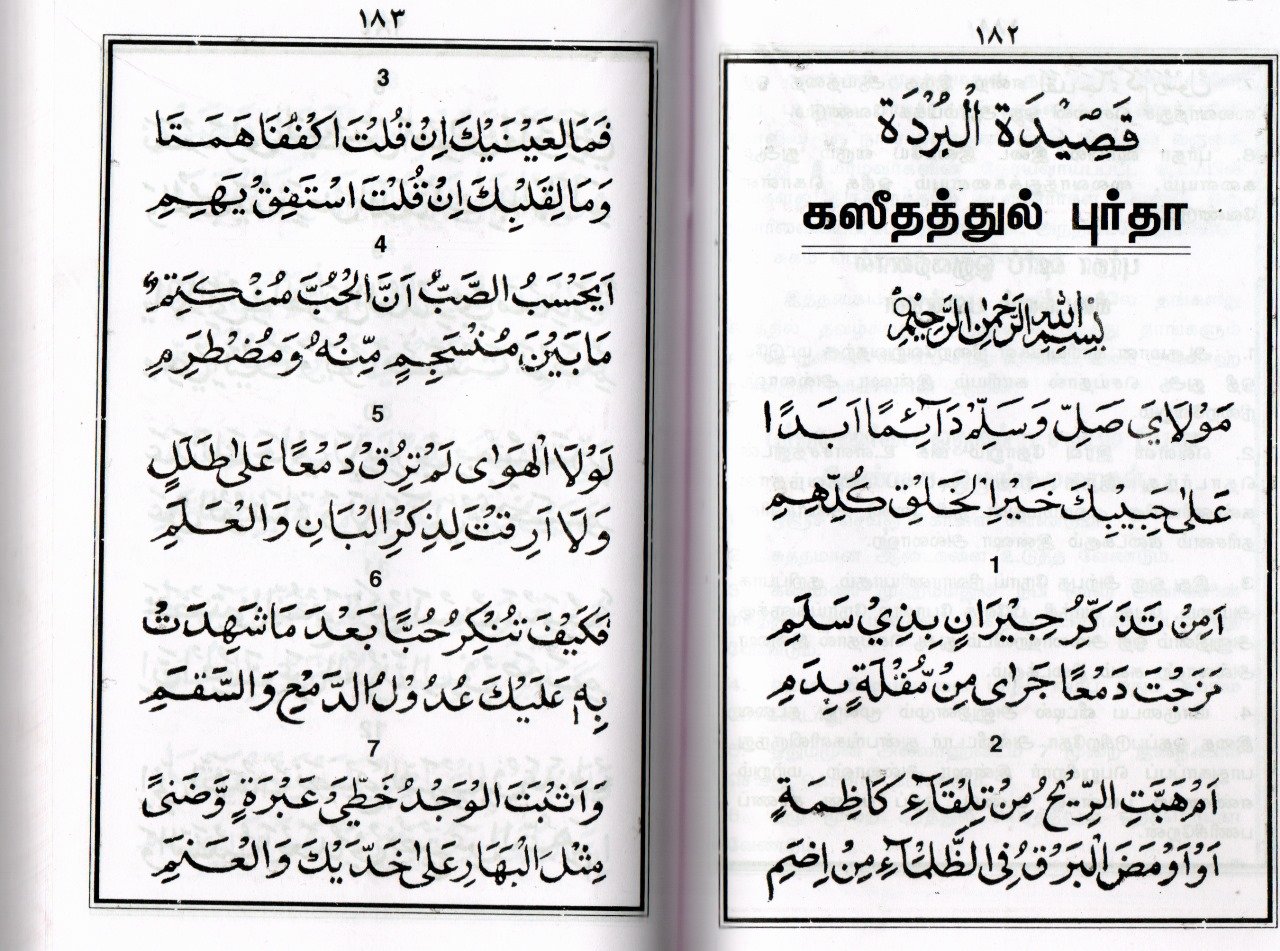 ١٨٢
قَصِيْدَةُ الْبُرْدَةِ
கஸீதத்துல் புர்தா
بِسْمِ اللهِ الرَّحْمٰنِ الرَّحِيْمِ
مَوْلَايَ صَلِّ وَسَلِّمْ دَآئِمًا اَبَدًا
عَلٰى حَبِيْبِكَ خَيْرِ الْخَلْقِ كُلِّهِمِ
1
اَمِنْ تَذَكُّرِ جِيْرَانٍ بِذِيْ سَلَمِ
مَزَجْتَ دَمْعًا جَرٰى مِنْ مُّقْلَةٍ بِدَمِ
2
اَمْ هَبَّتِ الرِّيْحُ مِنْ تِلْقَآءِ كَاظِمَةٍ
اَوْ اَوْمَضَ الْبَرْقُ فِى الظَّلْمَآءِ مِنْ اِضَمِ
١٨٣
3
فَمَا لِعَيْنَيْكَ اِنْ قُلْتَ اكْفُفَا هَمَتَا
وَمَا لِقَلْبِكَ اِنْ قُلْتَ اسْتَفِقْ يَهِمِ
4
اَيَحْسَبُ الصَّبُّ اَنَّ الْحُبَّ مُنْكَتِمٌ
مَا بَيْنَ مُنْسَجِمٍ مِّنْهُ وَمُضْطَرِمِ
5
لَوْلَا الْهَوٰى لَمْ تُرِقْ دَمْعًا عَلٰى طَلَلٍ
وَلَا اَرِقْتَ لِذِكْرِ الْبَانِ وَالْعَلَمِ
6
فَكَيْفَ تُنْكِرُ حُبًّا بَعْدَ مَا شَهِدَتْ
بِهٖ عَلَيْكَ عُدُوْلُ الدَّمْعِ وَالسَّقَمِ
7
وَاَثْبَتَ الْوَجْدُ خَطَّيْ عَبْرَةٍ وَّضَنًى
مِثْلَ الْبَهَارِ عَلٰى خَدَّيْكَ وَالْعَنَمِ